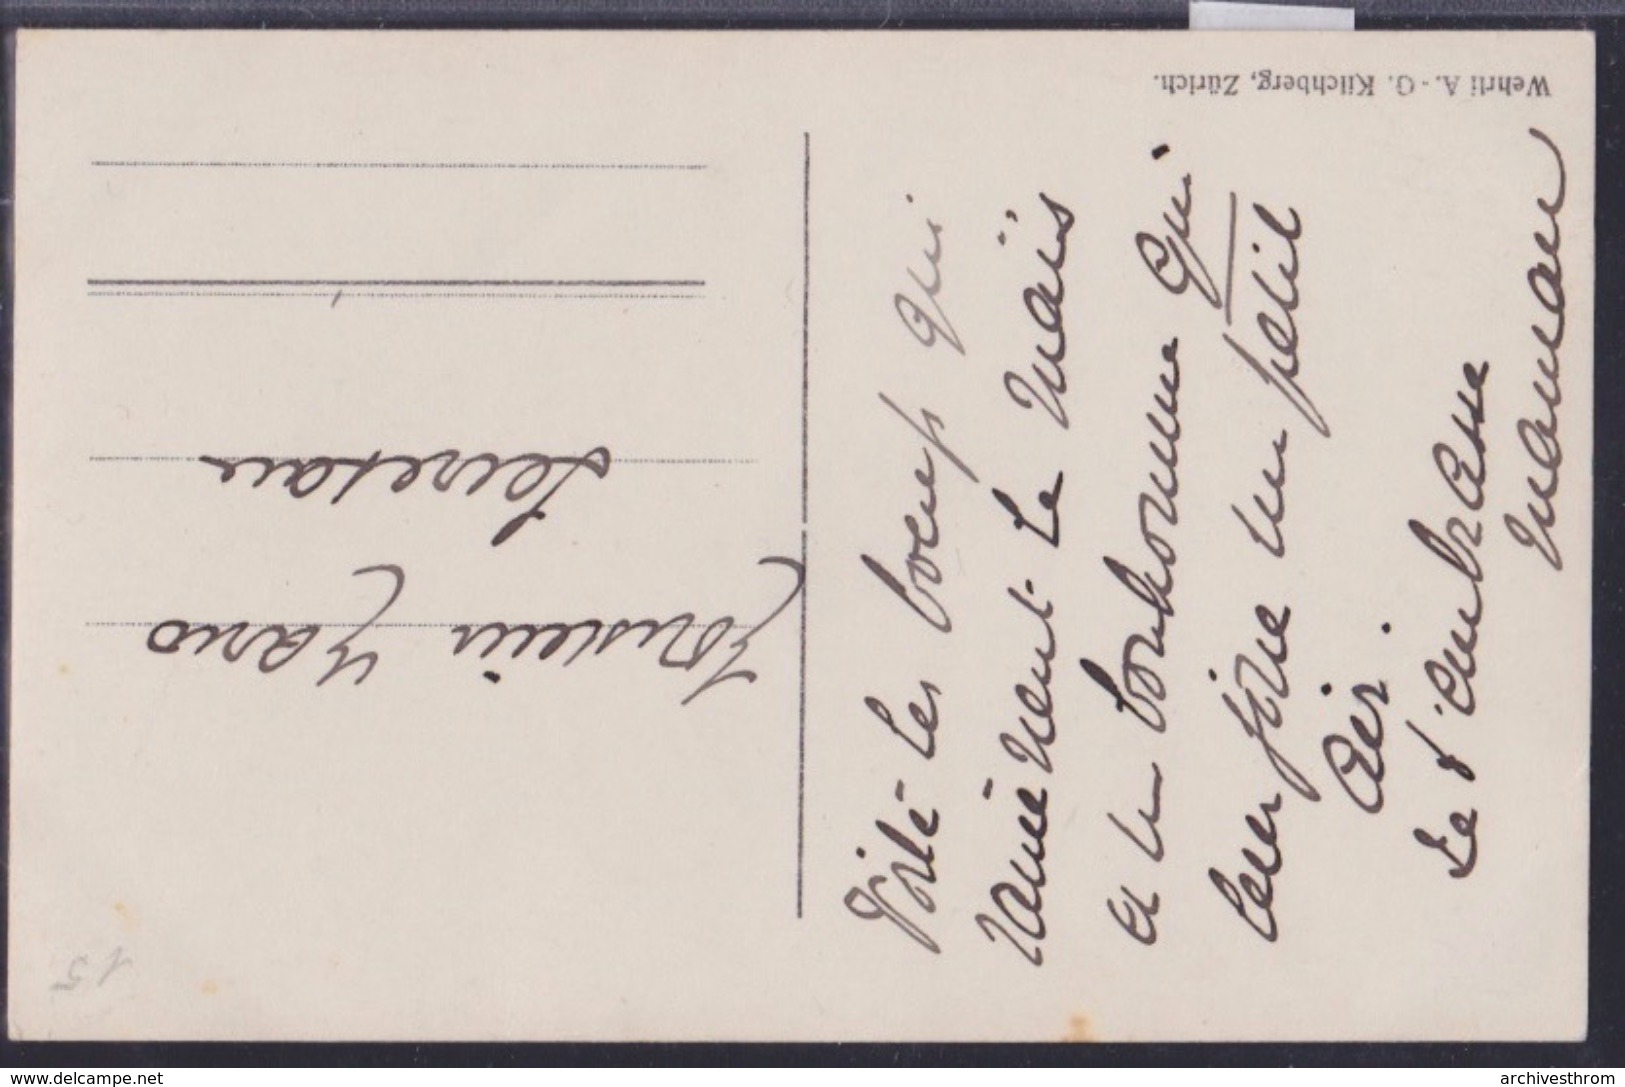 Wehrli A.-G. Kilchberg, Zürich.
Voilà les boeufs qui
ramènent le maïs
et le bonhomme qui
leur joue un petit
air.
Je t'embrasse
maman
Monsieur Mario
Secretan
15
www.delcampe.net
archivesthrom